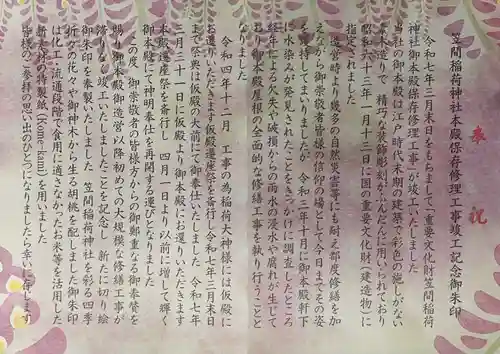 奉祝
笠間稲荷神社本殿保存修理工事竣工記念御朱印
令和七年三月末日をもちまして「重要文化財笠間稲荷
神社御本殿保存修理工事」が竣工いたしました
当社の御本殿は江戸時代末期の建築で彩色の施しがない
素木造りで 精巧な装飾彫刻がふんだんに用いられており
昭和六十三年一月十三日に国の重要文化財(建造物)に
指定されました
建築時より幾多の自然災害等にも耐え都度修繕を加
えながら御崇敬者皆様の信仰の場として今日までその姿
を護持してまいりましたが 令和三年十月に御本殿軒下
に水染みが発見されたことをきっかけに調査したところ
経年による欠失や破損からの雨水の浸水や腐れが生じて
おり 御本殿屋根の全面的な修繕工事を執り行うことと
なりました
令和四年十二月 工事の為稲荷大神様には仮殿に
お遷りいただきます仮殿遷座祭を斎行し令和七年三月末日
まで祭典は仮殿の大前にて御奉仕いたしました 令和七年
三月三十一日に仮殿より御本殿にお還りいただきます
本殿遷座祭を斎行し 四月一日より以前に増して輝く
御本殿にて神明奉仕を再開する運びとなりました
この度 御崇敬者の皆様方からの御鄭重なる御奉賛を
賜り御本殿御造営以降初めての大規模な修繕工事が
滞りなく竣工いたしましたことを記念し 新たに切り絵
御朱印を奉製いたしました 笠間稲荷神社を彩る四季
折々の花々や御神木から生る胡桃を配しました御朱印
は化工・流通段階で食用に適さなかったお米等を活用した
新素材の特製紙(Kome-kami)を用いました
皆様のご参拝の思い出のひとつになりましたら幸いに存じます